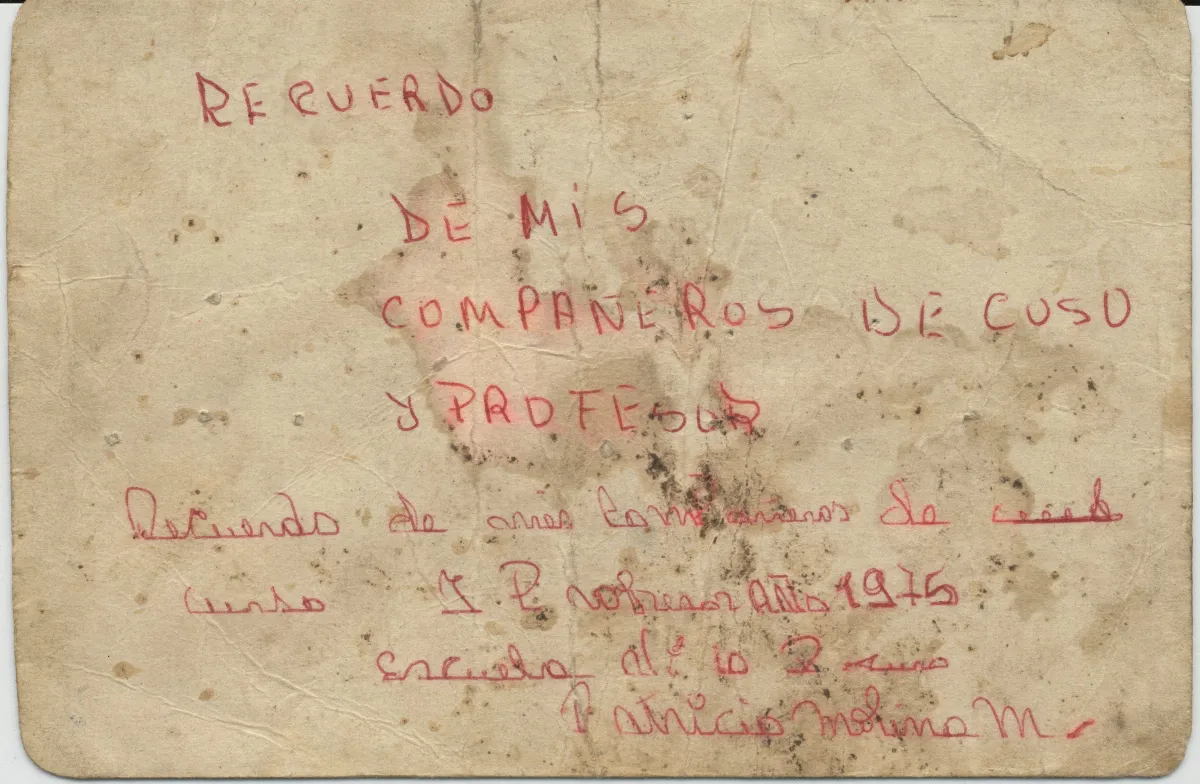 RECUERDO
DE MiS
COMPAÑEROS DE CUSO
Y PROFESOR
Recuerdo de mis Compañeros de
curso Y Profresor Año 1975
Escuela Nº 10
Patricio Molina M.